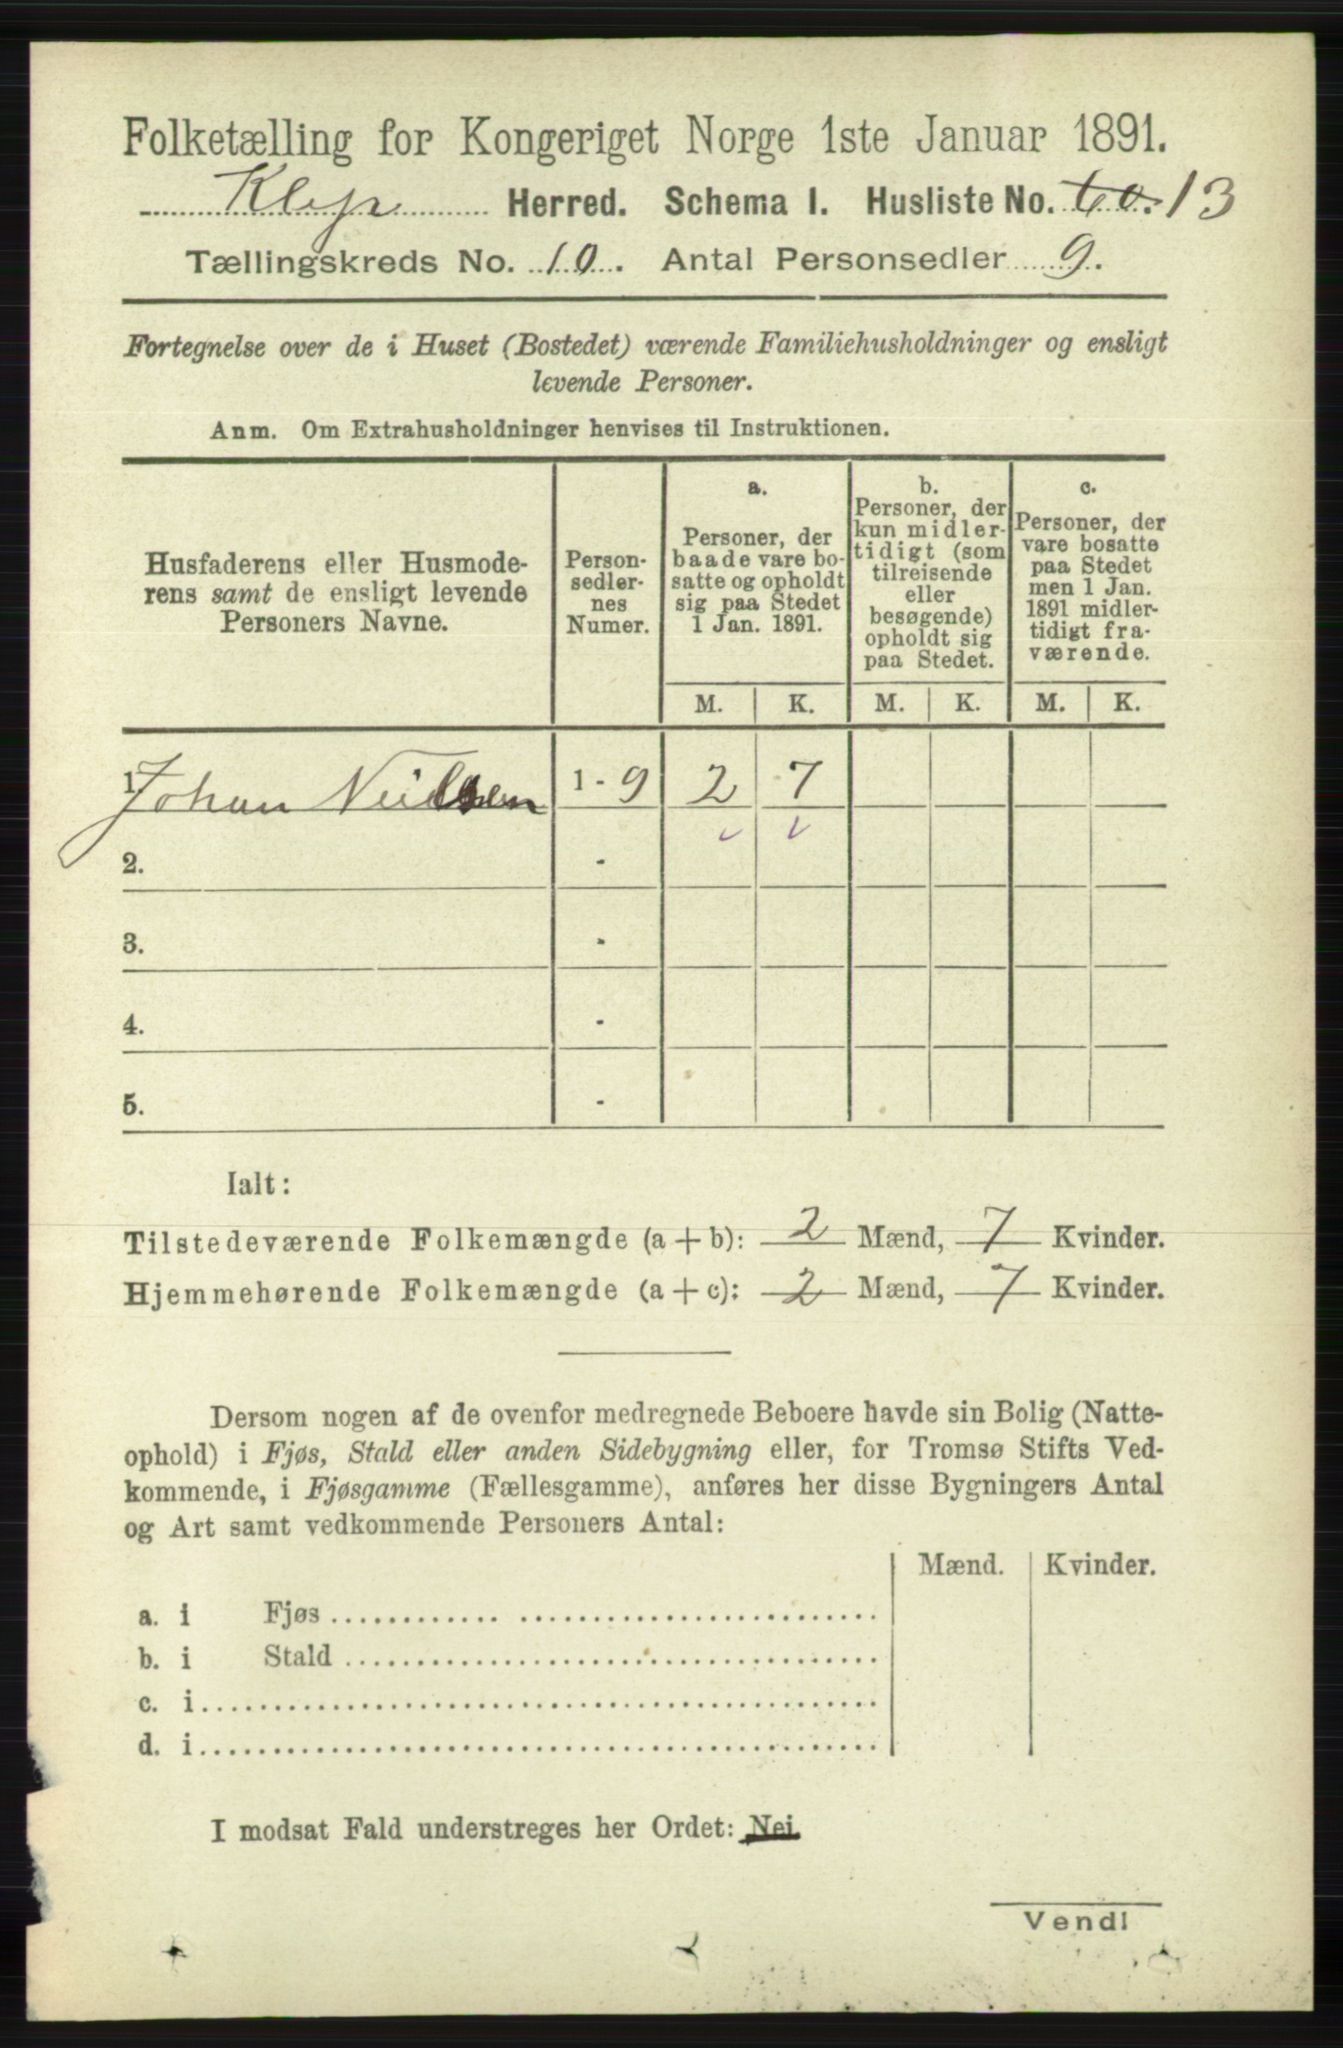 Folketælling for Kongeriget Norge 1ste Januar 1891.
Klep Herred. Schema I. Husliste No. 13
Tællingskreds No. 10. Antal Personsedler 9.
Fortegnelse over de i Huset (Bostedet) værende Familiehusholdninger og ensligt
levende Personer.
Anm. Om Extrahusholdninger henvises til Instruktionen.
Husfaderens eller Husmode-
rens samt de ensligt levende
Personers Navne.
Person-
sedler-
nes
Numer.
a.
Personer, der
baade vare bo-
satte og opholdt
sig paa Stedet
1 Jan. 1891.
b.
Personer, der
kun midler-
tidigt (som
tilreisende
eller
besøgende)
opholdt sig
paa Stedet.
c.
Personer, der
vare bosatte
paa Stedet
men 1 Jan.
1891 midler-
tidigt fra-
værende.
M. K. M. K. M. K.
1. Johan 1 - 9 2 7
2. -
3. -
4. -
5. -
Ialt:
Tilstedeværende Folkemængde (a + b): 2 Mænd, 7 Kvinder.
Hjemmehørende Folkemængde (a + c): 2 Mænd, 7 Kvinder.
Dersom nogen af de ovenfor medregnede Beboere havde sin Bolig (Natte-
ophold) i Fjøs, Stald eller anden Sidebygning eller, for Tromsø Stifts Ved-
kommende, i Fjøsgamme (Fællesgamme), anføres her disse Bygningers Antal
og Art samt vedkommende Personers Antal:
Mænd. Kvinder.
a. i Fjøs
b. i Stald
c. i
d. i
I modsat Fald understreges her Ordet: Nei
Vend!